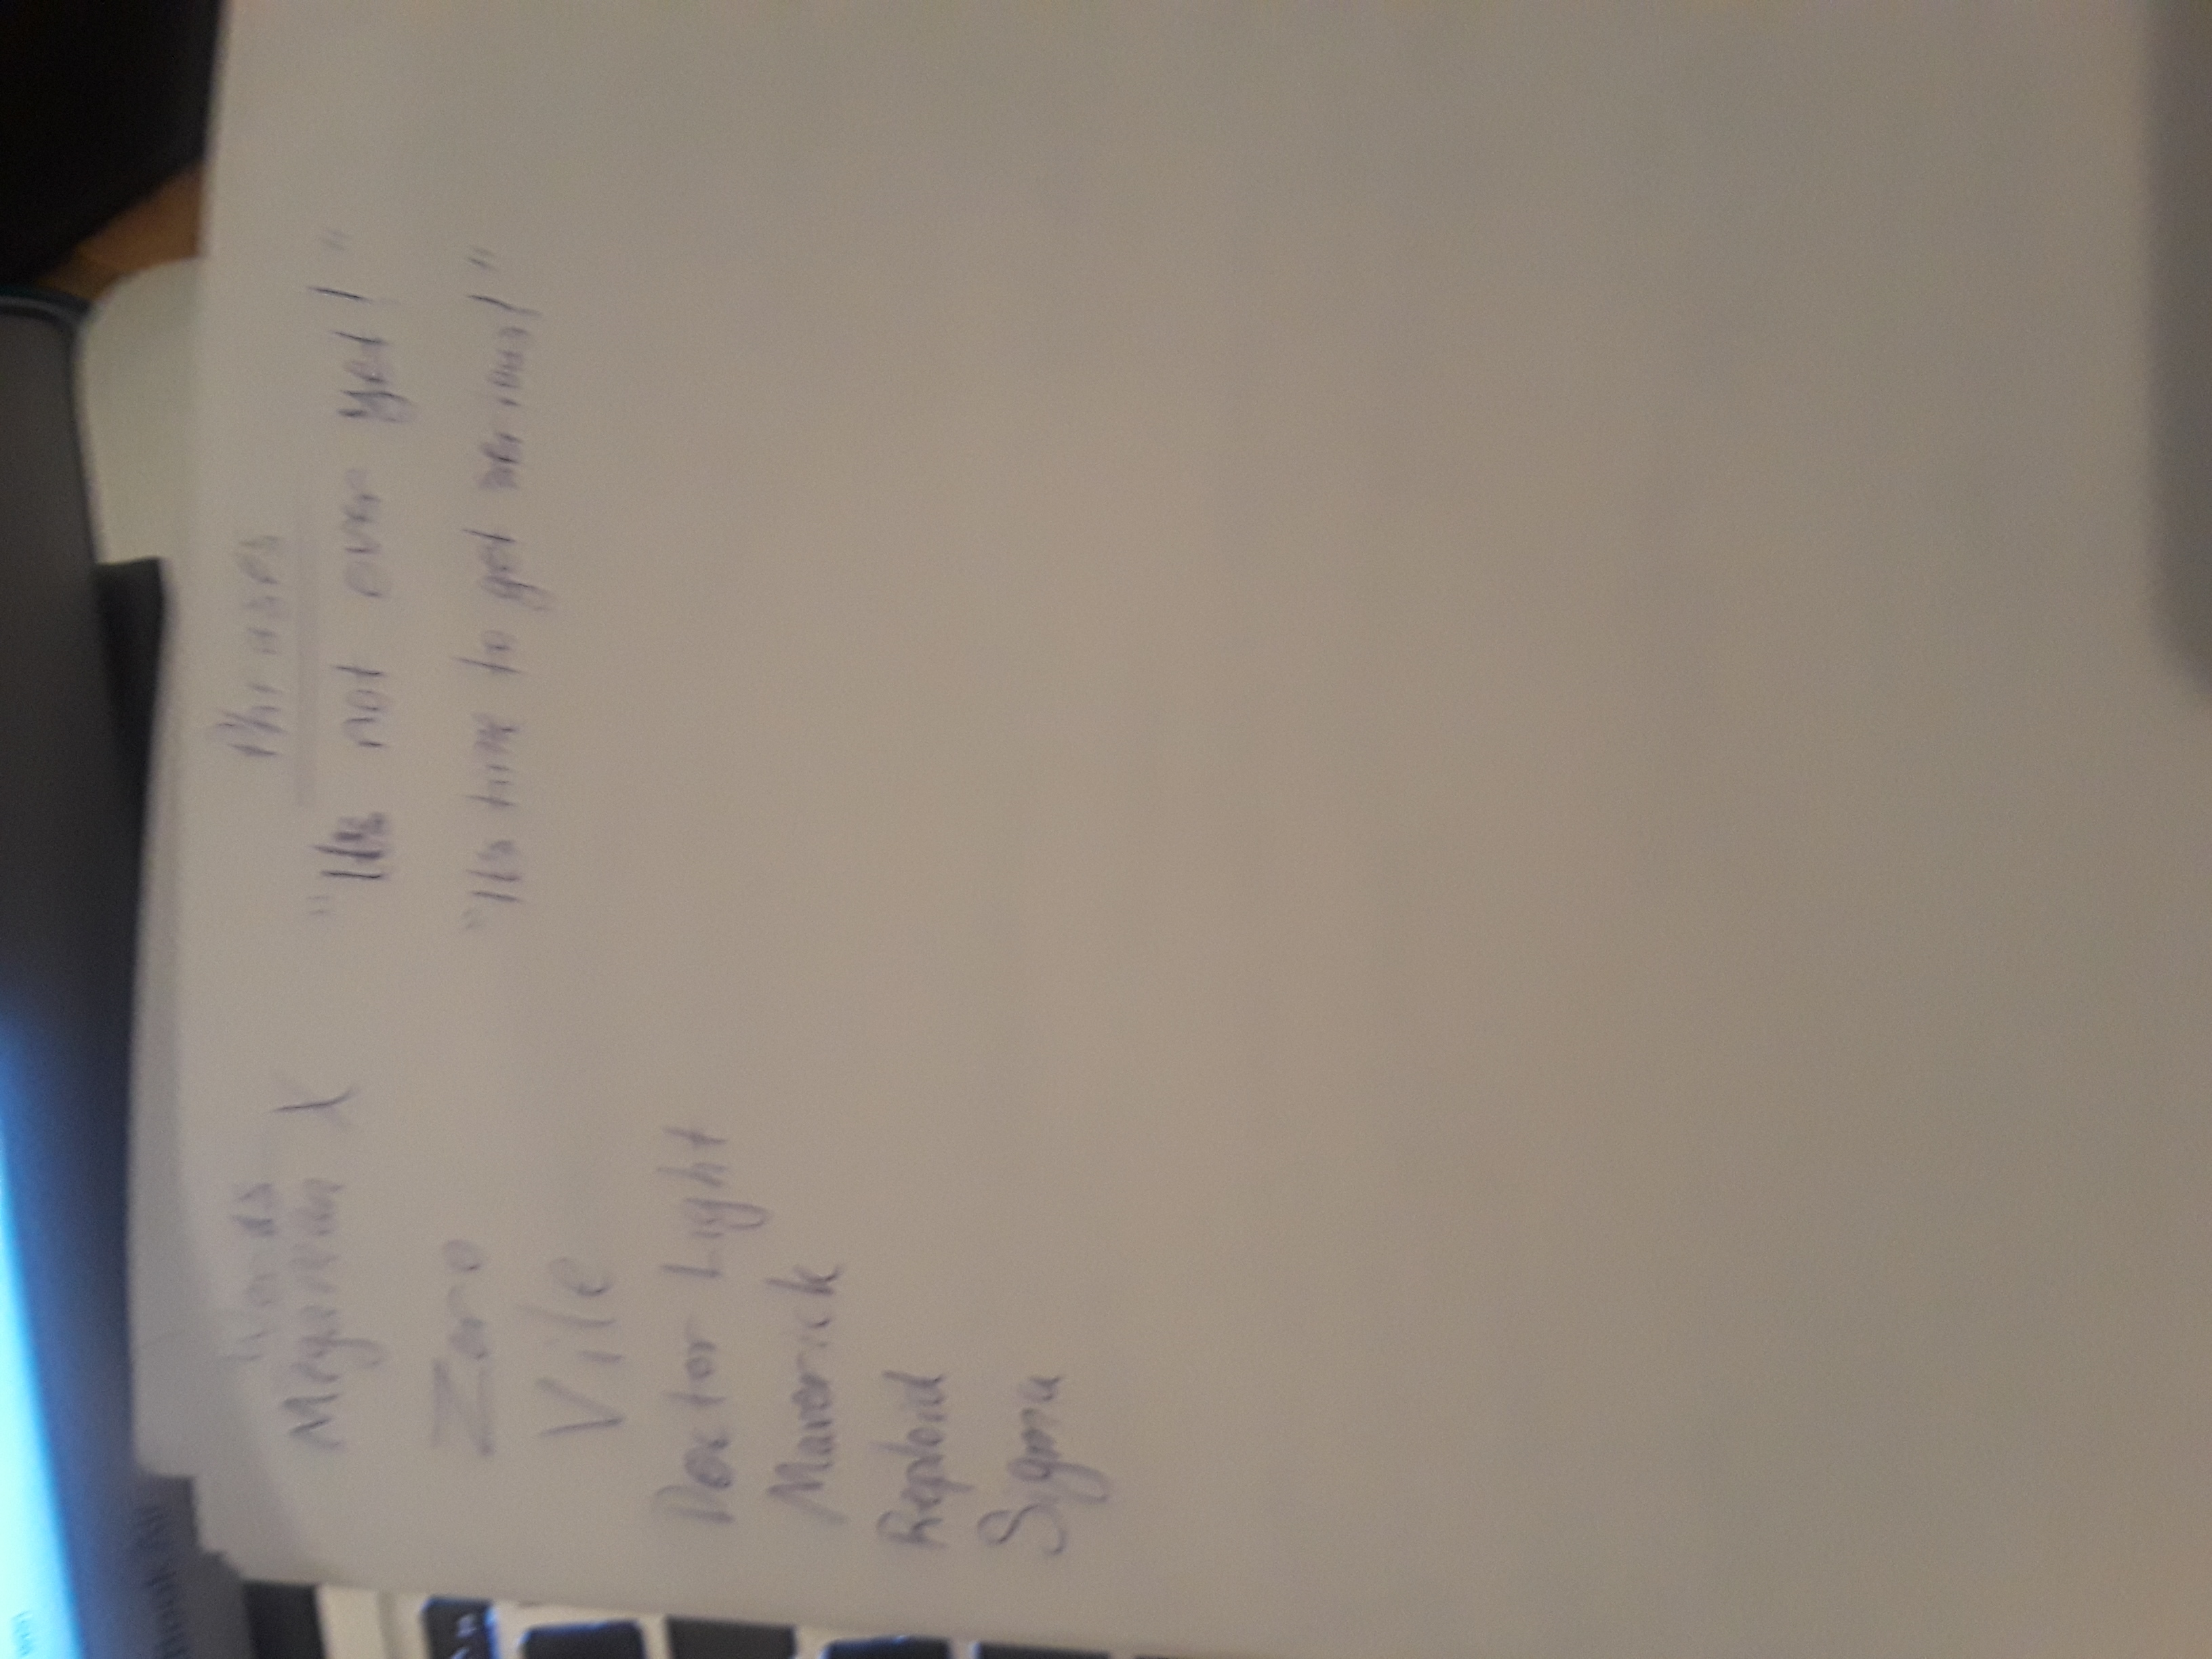 Words
Megaman X
Zero
Vile
Doctor Light
Maverick
Reploid
Sygma
Phrases
"It's not over yet!"
"It's time to get serious!"